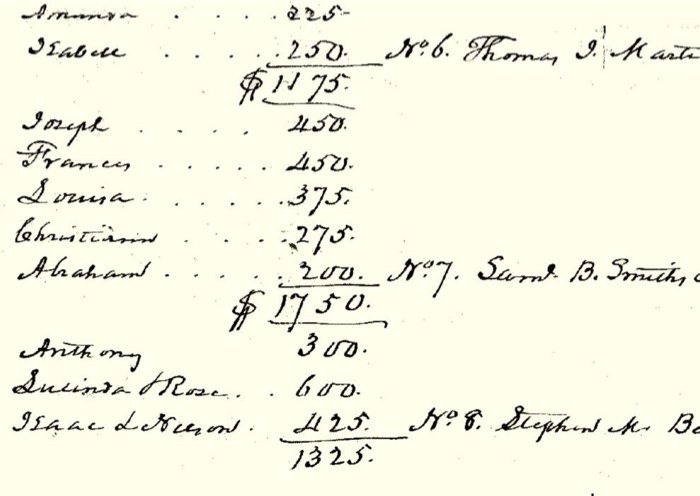 Amanda . . . . 225
Isabell . . . . 250. No. 6. Thomas I. Mart
$1175.
Joseph . . . . 450.
Frances . . . . 450.
Louisa . . . . 375.
Christiann . . . 275.
Abraham . . . . 200. No. 7. Saml. B. Smiths
$1750.
Anthony 300.
Lucinda & Rose . . 600.
Isaac & Nelson . 425. No. 8. Stephen M. B
1325.